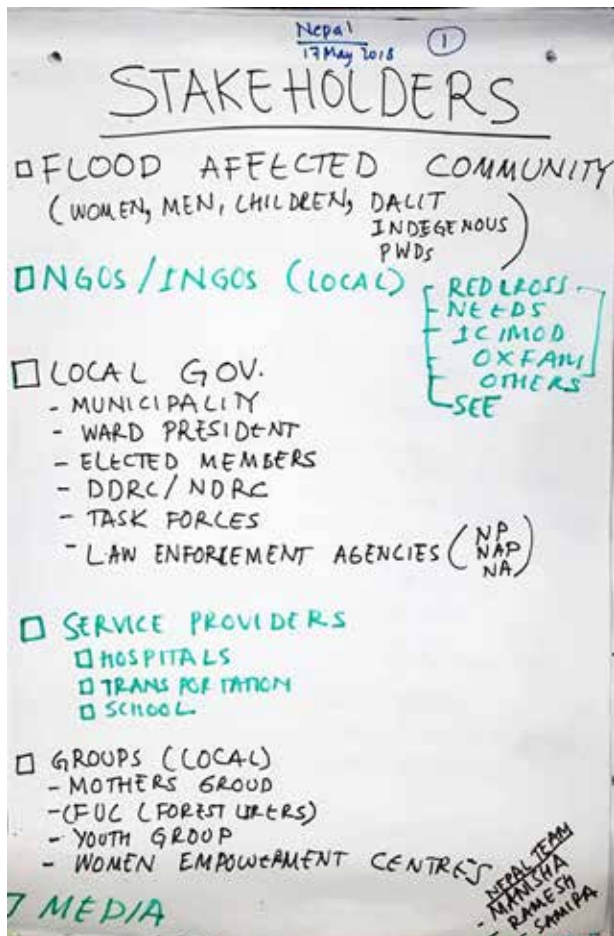 Nepal
17 May 2018
1
STAKEHOLDERS
FLOOD AFFECTED COMMUNITY
(WOMEN, MEN, CHILDREN, DALIT
INDEGENOUS
PWDs)
NGOS/INGOS (LOCAL)
- RED CROSS
- NEEDS
- ICIMOD
- OXFAM
OTHERS
- SEE
LOCAL GOV.
- MUNICIPALITY
- WARD PRESIDENT
- ELECTED MEMBERS
- DDRC/NDRC
- TASK FORCES
- LAW ENFORCEMENT AGENCIES (NP
NAP
NA)
SERVICE PROVIDERS
HOSPITALS
TRANSPORTATION
SCHOOL
GROUPS (LOCAL)
- MOTHERS GROUP
- CFUC (FOREST USERS)
- YOUTH GROUP
- WOMEN EMPOWERMENT CENTRES
MEDIA
NEPAL TEAM
- MANISHA
- RAMESH
- SAMIRA